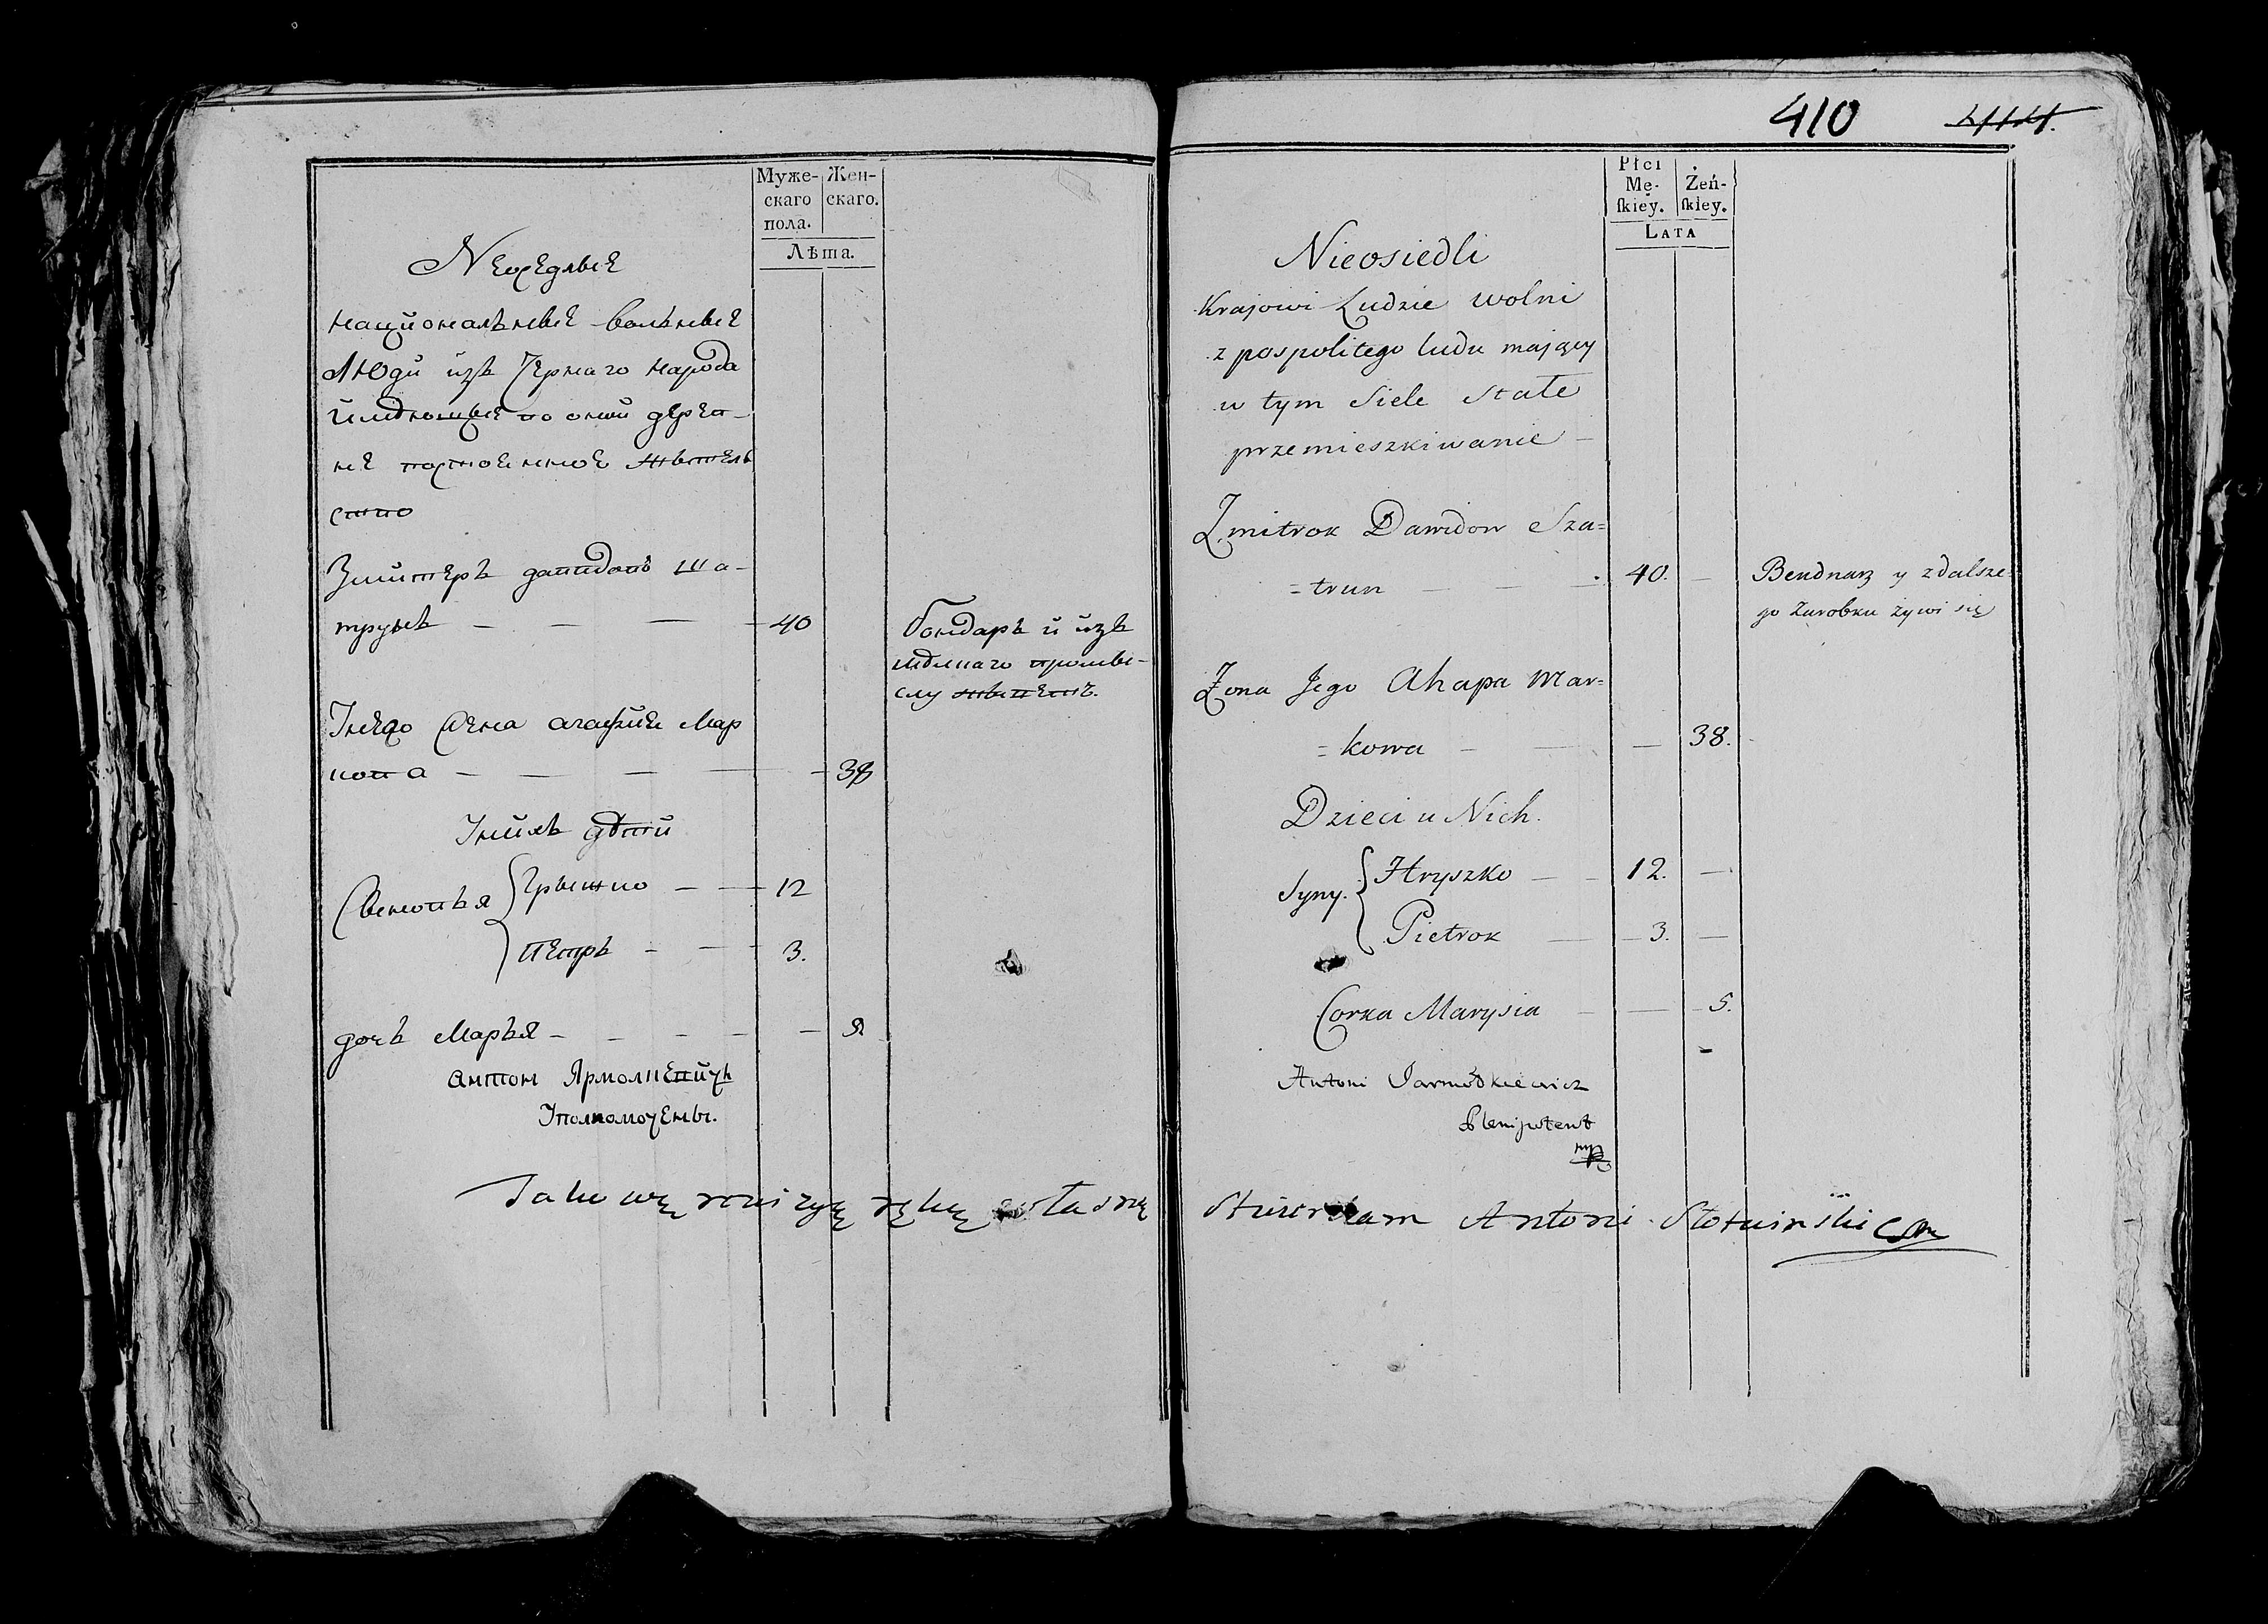 Муже-
скаго
пола.
Жен-
скаго.
Лѣта.
Неоседлые
Национальные вольные
Люди изъ Чернаго народа
имѣющые во оной дерев-
не постоенное жытель
ство
Змитеръ давидовъ Ша-
трунъ — — — 40
бондарь и изъ
промы-
слу жыветъ.
Жена агафия Мар
кова — — — 38
дѣти
Сыновья { Грышко — — 12
Петръ — — 3.
дочь Марья — — — —
Антон Ярмолкевичъ
Уполномочены.
410 414.
Płci
Mę-
ſkiey.
Żeń-
ſkiey.
LATA
Nieosiedli
Krajowi Ludzie wolni
z pospolitego ludu mający
w tym Siele Stałe
przemieszkiwanie —
Zmitrok Dawidow Sza=
=trun — — — 40. —
Bendnarz y zdalsze
go Zarobku żywi się
Żona Jego Ahapa Mar=
=kowa — — — 38.
Dzieci u Nich.
Syny. { Hryszko — — 12. —
Pietrok — — 3. —
Corka Marysia — — 5.
Antoni Jarmołkiewicz
Plenipotent
mp
Takową rewizyę ręką własną stwierdzam Antoni Słotwinski